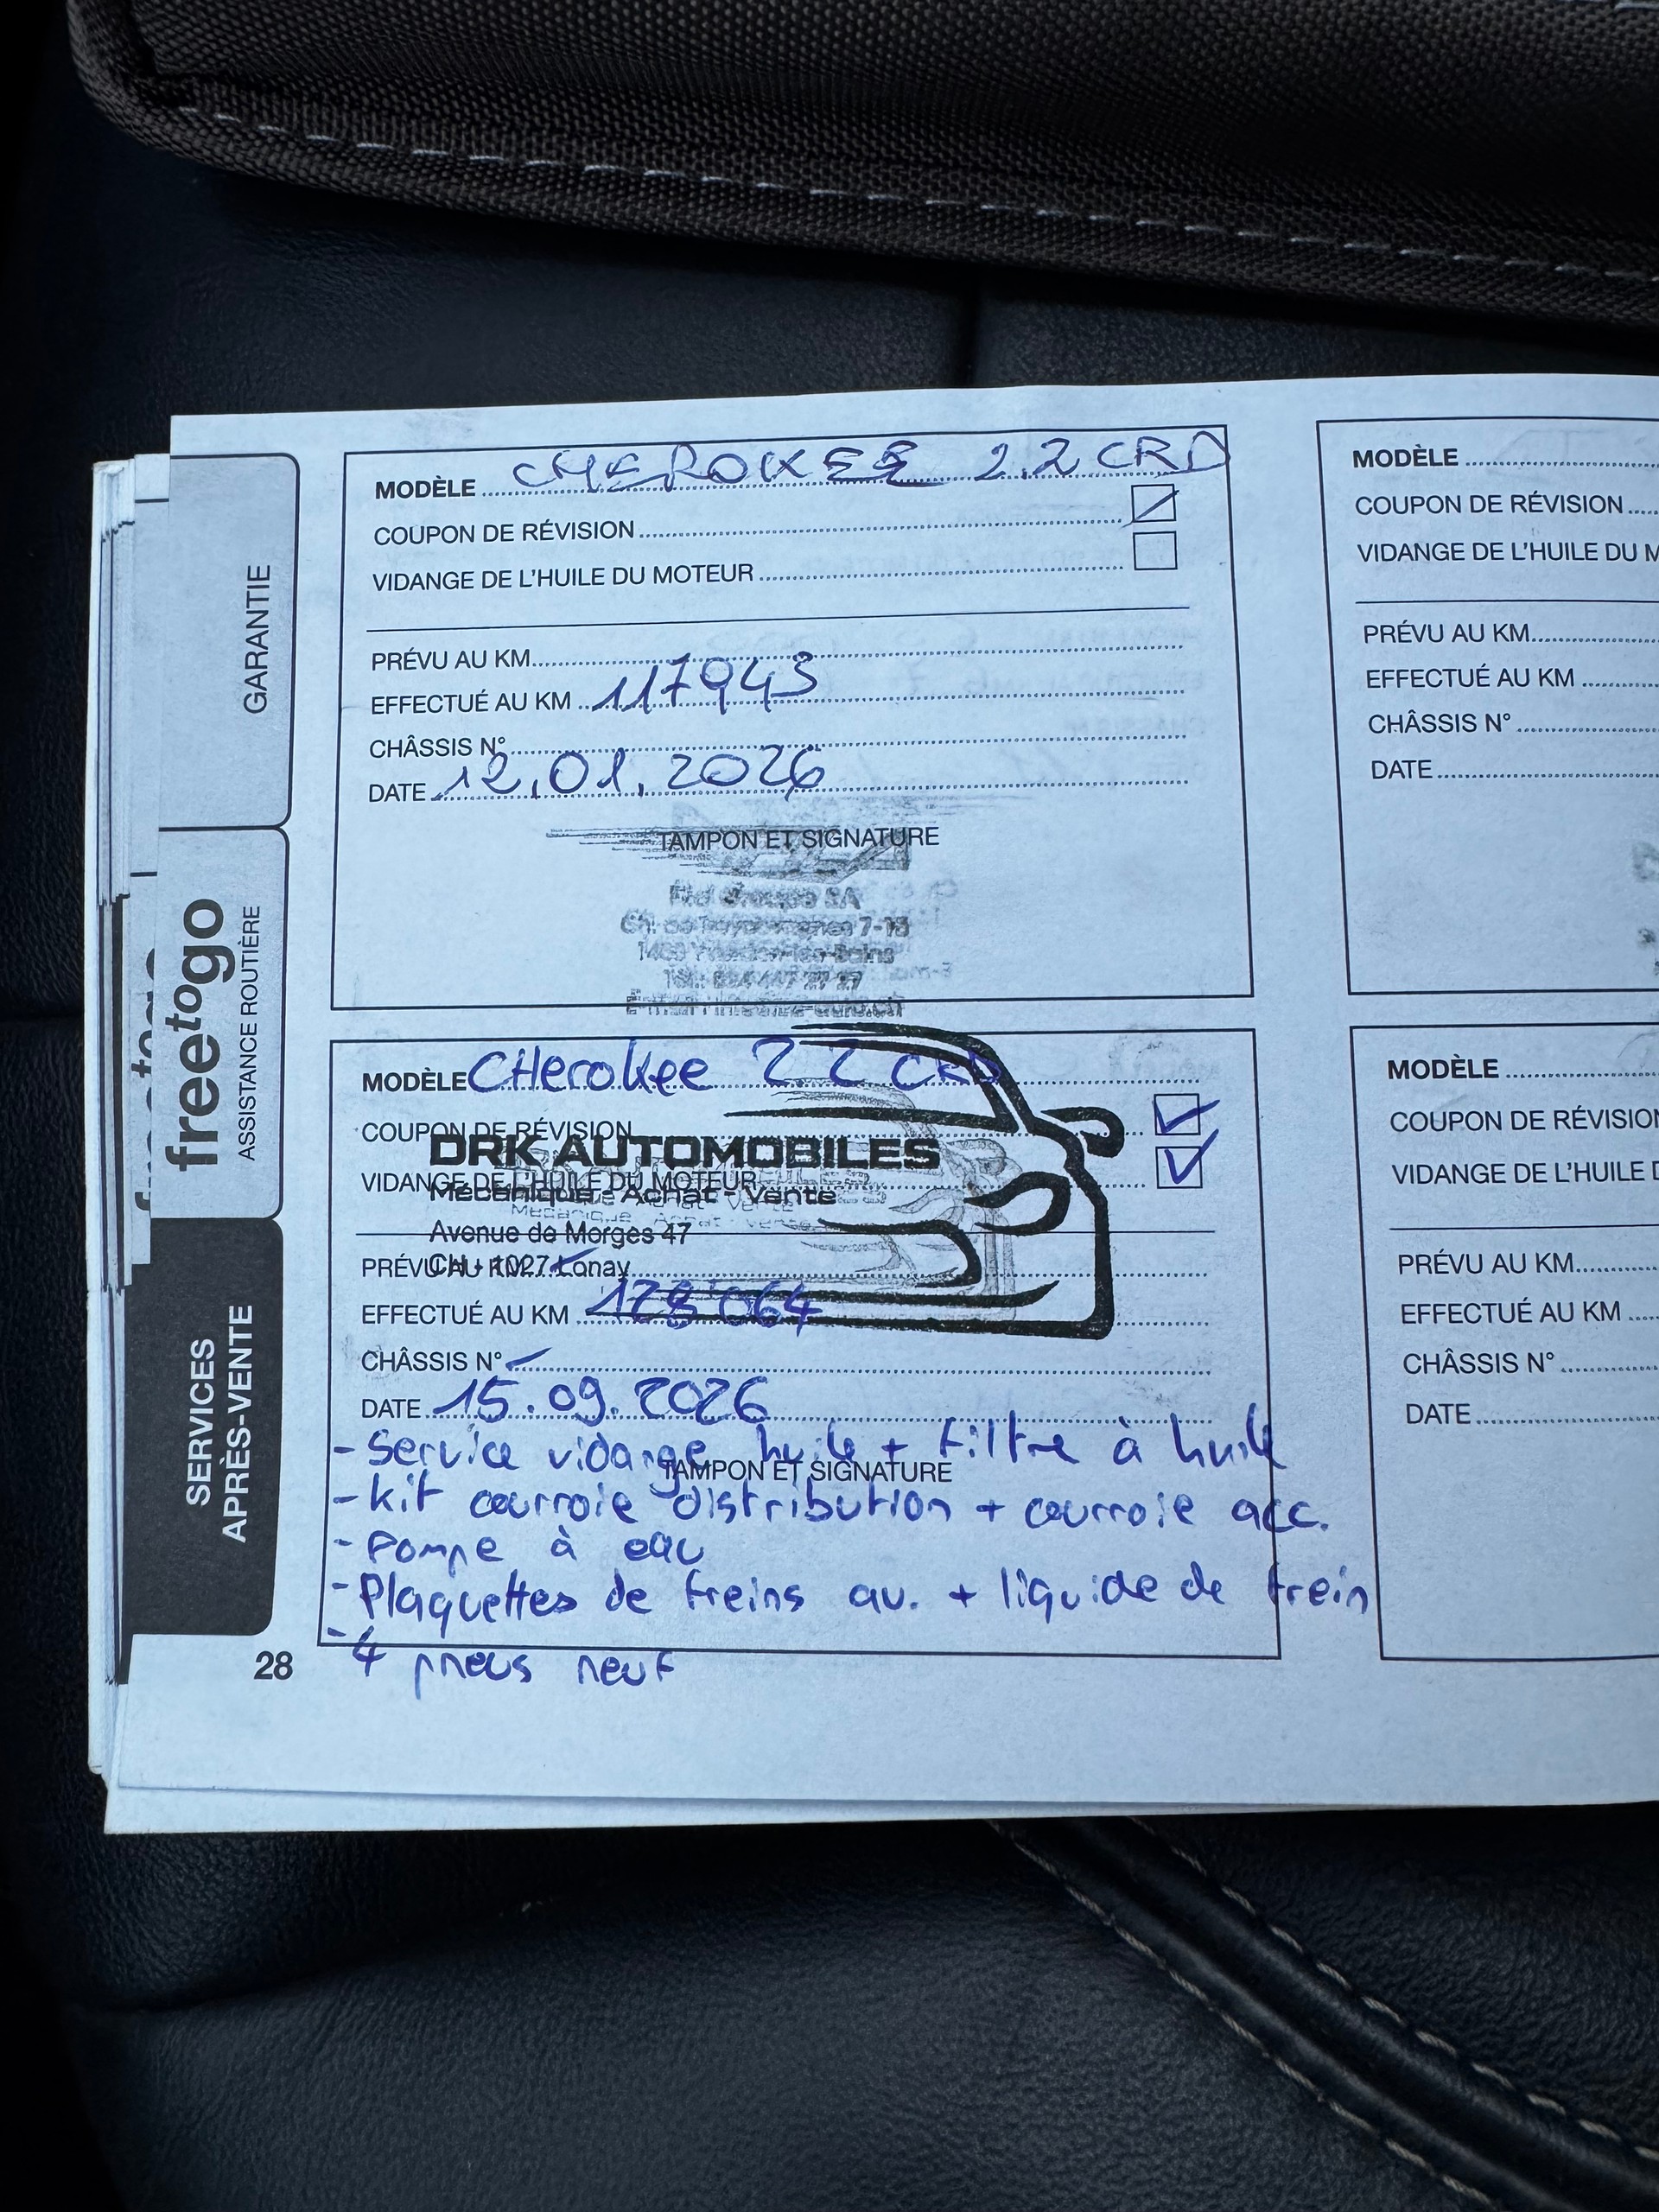 GARANTIE
freetogo
ASSISTANCE ROUTIÈRE
SERVICES
APRÈS-VENTE
MODÈLE CHEROKEE 2.2 CRD
COUPON DE RÉVISION
VIDANGE DE L'HUILE DU MOTEUR
PRÉVU AU KM
EFFECTUÉ AU KM 117943
CHÂSSIS N°
DATE 12.01.2026
TAMPON ET SIGNATURE
7-15
MODÈLE CHerokee 2 2 CRD
COUPON DE RÉVISION
DRK AUTOMOBILES
VIDANGE DE L'HUILE DU MOTEUR
Mécanique - Achat - Vente
Avenue de Morges 47
PRÉVU AU KM
CH - 1027 Lonay
EFFECTUÉ AU KM 064
CHÂSSIS N°
DATE 15.09.2026
- Service vidange huile + filtre à huile
TAMPON ET SIGNATURE
- kit courroie distribution + courroie acc.
- Pompe à eau
- Plaquettes de freins av. + liquide de frein
- 4 pneus neuf
28
MODÈLE
COUPON DE RÉVISION
VIDANGE DE L'HUILE DU M
PRÉVU AU KM
EFFECTUÉ AU KM
CHÂSSIS N°
DATE
MODÈLE
COUPON DE RÉVISION
VIDANGE DE L'HUILE D
PRÉVU AU KM
EFFECTUÉ AU KM
CHÂSSIS N°
DATE